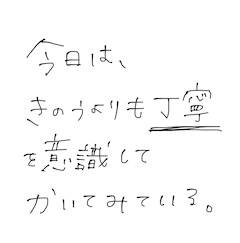 今日は、
きのうよりも丁寧
を意識して
かいてみている。